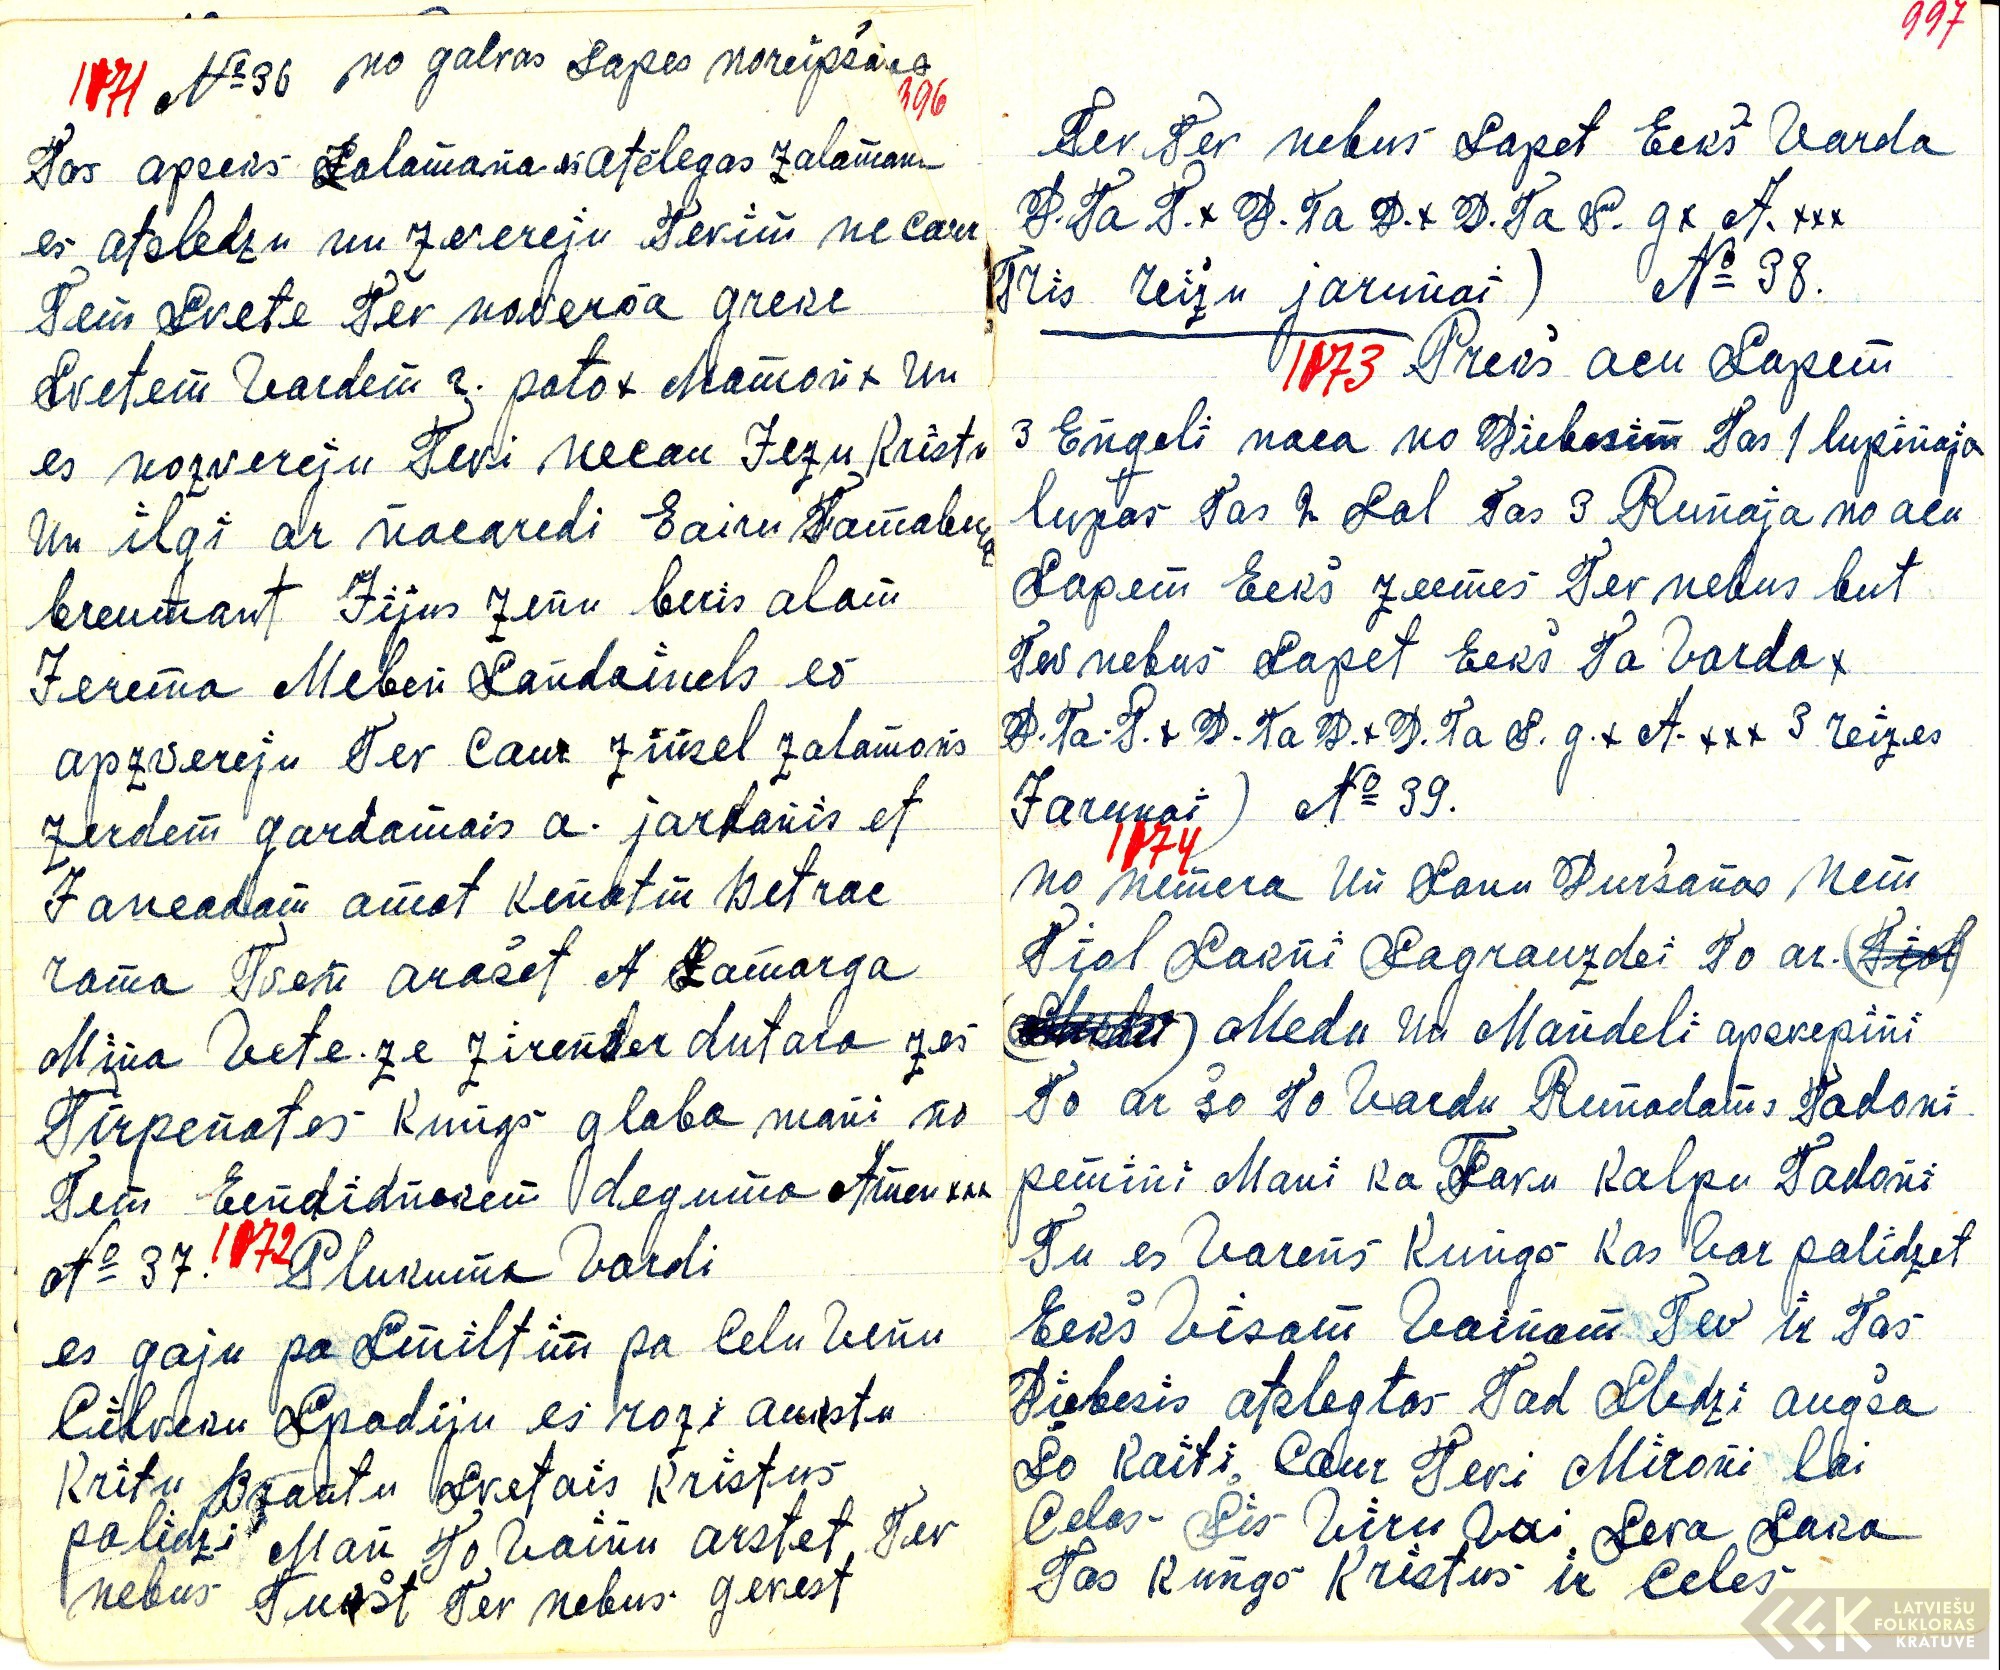 1871 № 36 no galvas Sapes noreipšanas
396
Tas apseks Zalamana es atslegas Zalamana
es atsledzu un zvereju Tevim ne caur
Tem Svete Tev noversa greke
Svetem Vardem 2. pato x Mamon x Un
es nozvereju Tevi necau Jezu Kristu
Un ilgi ar nacaredi Eairu
breumant Jijus Zenu beris alam
Jerema Meben Sandainels es
apzvereju Tev Caur zinsel zalamons
zerdem gardamais a. jardanis et
Janeadam amat Kenatm Betrac
rama Tven arašet A Zamarga
Mina Vete. ze zirender dutara zes
Tirpenates Kungs glaba mani no
Tem Eendidnekem deguma Amen xxx
№ 37. 1872 Plukuma Vardi
es gaju pa Smiltim pa Celu Venu
Cilveku Spadiju es rozi aukstu
Kritu Svetais Kristus
palidzi Man To Vainu arstet Tev
nebus Tukst Tev nebus gevest
997
Tev Tev nebus Sapet Eekš Varda
D. Ta T. x D. Ta D. x D. Ta S. g x A. xxx
Tris reizu jarunai ) № 38.
1873 Prekš acu Sapem
3 Engeli naca no Diebesim Tas 1 lupinaja
lupas Tas 2 Sal Tas 3 Runaja no acu
Sapem Eekš zeemes Tev nebus but
Tev nebus Sapet Eekš Ta Varda x
D. Ta. T. x D. Ta D. x D. Ta S. g. x A. xxx 3 reizes
Jarunai ) № 39.
1874
no nemera Un Saku Duršanas Nem
Tjal Sakni Sagrauzdei To ar. (Tjal)
Medu Un Mandeli apskepini
To ar šo To Vardu Runadams Tadoni
pemini Mani ka Savu Kalpu Tadoni
Tu es Varens Kungs Kas Var palidzet
Eekš Visam Vainam Tev ir Tas
Diebesis atslegtas Tad Sledzi augša
So Kaiti Caur Tevi Mironi lai
Celas Sis Viru Vai Seva Saka
Tas Kungs Kristus ir Celes
LATVIEŠU
FOLKLORAS
KRĀTUVE